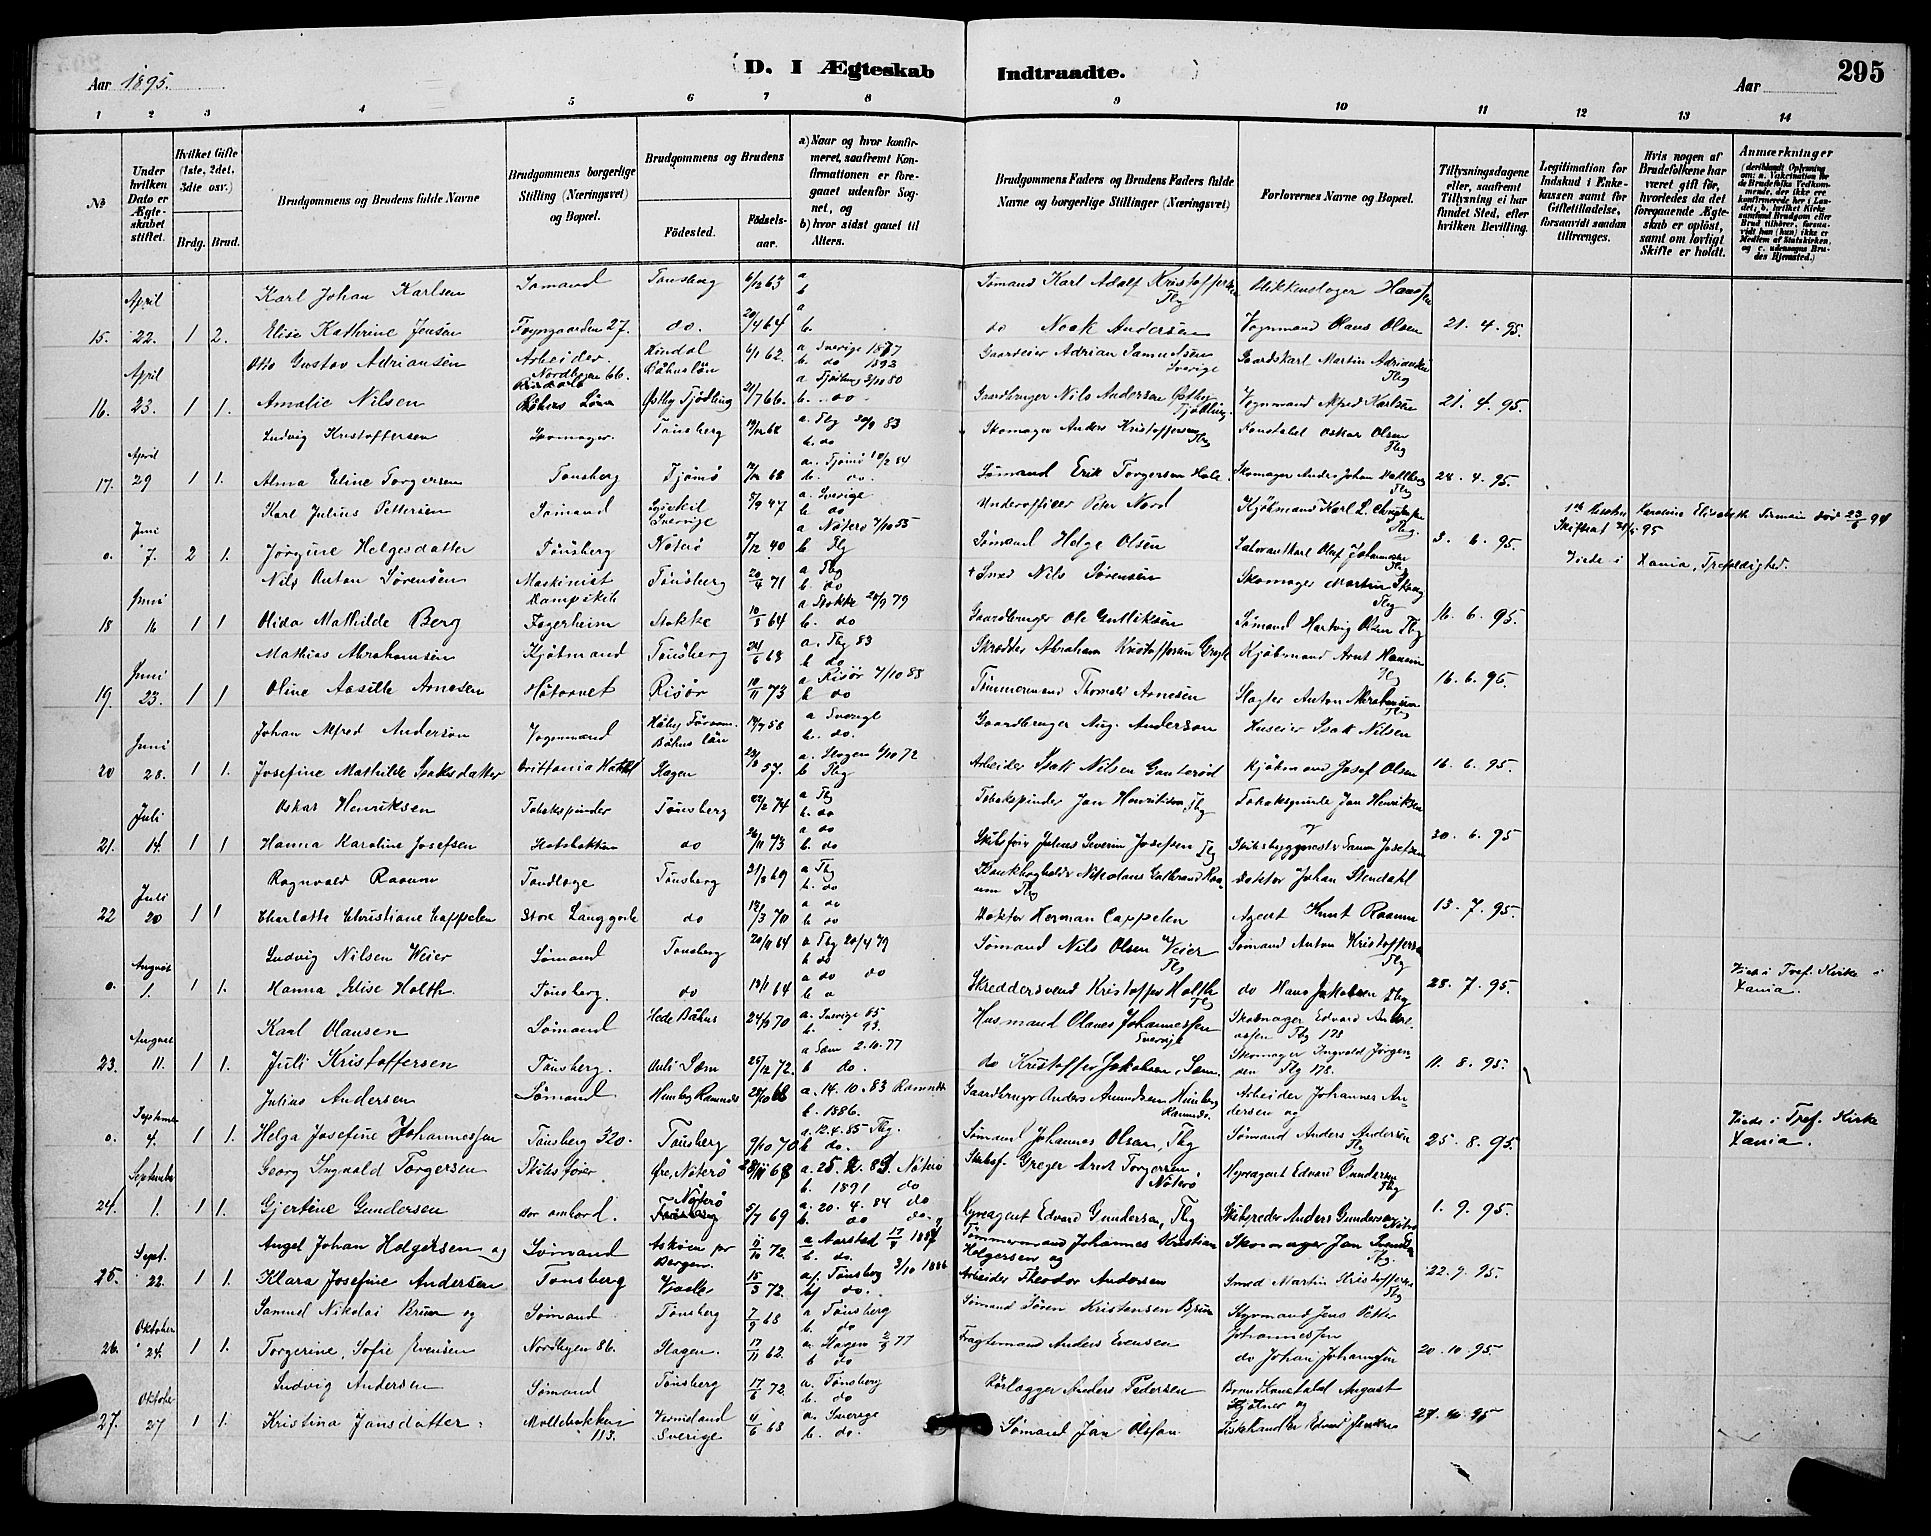 D. I Ægteskab Indtraadte.
295
Aar 1895.
Aar
1 2 3 4 5 6 7 8 9 10 11 12 13 14
No
Under hvilken Dato er Ægteskabet stiftet.
Hvilket Gifte (1ste, 2det, 3die osv.)
Brdg. Brud.
Brudgommens og Brudens fulde Navne
Brudgommens borgerlige Stilling (Næringsvei) og Bopæl.
Brudgommens og Brudens
Fødested.
Fødselsaar.
a) Naar og hvor konfirmeret, saafremt Konfirmationen er foregaaet udenfor Sognet, og
b) hvor sidst gaaet til Alters.
Brudgommens Faders og Brudens Faders fulde Navne og borgerlige Stillinger (Næringsvei)
Forlovernes Navne og Bopæl.
Tillysningsdagene eller, saafremt Tillysning ei har fundet Sted, efter hvilken Bevilling.
Legitimation for Indskud i Enkekassen samt for Giftetilladelse, forsaavidt saadan tiltrænges.
Hvis nogen af Brudefolkene har været gift før, hvorledes da det foregaaende Ægteskab er opløst, samt om lovligt Skifte er holdt.
Anmærkninger
Karl Johan Karlsen Sømand Tønsberg 6/12 63 a b Sømand Karl Adolf Kristoffersen Tbg Blikkenslager Hansen
15. April 22. 1 2. Elise Kathrine Jensen Fayngaarden 27. do. 20/4 64 a b. do Noak Andersen Vognmand Olaus Olsen 21. 4. 95.
Otto Gustav Adriansen Arbeider Nordbyen 66. Båhuslän 6/1 62. a Sverige b. do 1893 Gaardeier Adrian Samuelsen Sverige Gaardskarl Martin Adriansen Tbg
16. April 23. 1 1. Amalie Nilsen Østby Tjødling 21/7 66. a Tjølling 3/10 80 b. do Gaardbruger Nils Andersen Østby Tjødling. Vognmand Alfred Karlsen 21. 4. 95.
Ludvig Kristoffersen Skomager. Tønsberg 19/12 68 a. Tbg 30/9 83 b. do Skomager Anders Kristoffersen Tbg Konstabel Oskar Olsen Tbg
17. April 29 1 1. Alma Eline Torgersen Tønsberg Tjømø 68 a. Tjømø b. do. Sømand Erik Torgersen Hole. Skomager Anders Johan Dahlberg Tbg 28. 4. 95.
Karl Julius Pettersen Sømand Lysekil Sverige 8/9 47 a. Sverige b do Underofficer Peter Nord Kjøbmand Karl L. Christensen Tbg. 1ste Kvinde Karoline Elisabeth død 94
o. Juni 7. 2 1. Jørgine Helgesdatter Tønsberg Nøterø 40 a Nøterø 7/10 55 b Tbg Sømand Helge Olsen Olaf Johannesen Tbg 3. 6. 95. Viede i Xania, Trefoldighed.
Nils Anton Sørensen Maskinist Dampskib Tønsberg 20/4 71 a Tbg b do + Smed Nils Sørensen Skomager Martin Skaug Tbg
18 Juni 16 1 1 Olida Mathilde Berg Fagerheim Stokke 10/5 64 a Stokke 28/9 79 b. do Gaardbruger Ole Gulliksen Sømand Hartvig Olsen Tbg 16. 6. 95.
Mathias Abrahamsen Kjøbmand Tønsberg 24/6 68 a. Tbg 83 b do Skrædder Abraham Kristoffersen Kjøbmand Arnt Hansen Tbg
19. Juni 23. 1 1 Oline Aasille Arnesen Møtorvet Risør 10/11 73 a Risør 7/10 88 b do Tømmermand Thomas Arnesen Slagter Anton Abrahamsen Tbg 16. 6. 95.
Johan Alfred Anderson Vognmand Båhus län 14/7 58 a Sverige b. do. Gaardbruger Aug. Anderson Huseier Isak Nilsen
20 Juni 28. 1 1. Josefine Mathilde Isaksdatter Brittania Hotel Slagen 57. a. Slagen 6/10 72 b Tbg Arbeider Isak Nilsen Gauterød Kjøbmand Josef Olsen 16. 6. 95.
Oskar Henriksen Tobakspinder Tønsberg 22/2 74 a Tbg b. do Tobakspinder Jan Henriksen, Tbg Tobakspinder Jan Henriksen og
21. Juli 14. 1 1 Hanna Karoline Josefsen do 26/11 73 a do b. do Skibsfører Julius Severin Josefsen Tbg Skibsbyggmester Samm Josefsen 30. 6. 95
Ragnvald Raaum Tandlæge Tønsberg 31/8 69 a Tbg b. do Bankbogholder Nikolaus Gulbrand Raaum Tbg Doktor Johan Stendahl
22 Juli 20 1 1 Charlotte Christiane Cappelen Store Langgade do 12/3 70 a do b do Doktor Herman Cappelen Agent Knut Raaum 13. 7. 95.
Ludvig Nilsen Weier Sømand Tønsberg 20/11 64 a Tbg 20/4 79 b do Sømand Nils Olsen Veier Tbg Sømand Anton Kristoffersen Tbg
o. August 1. 1 1. Hanna Elise Holth. Tønsberg. do 13/1 64 a do do b a Skreddersvend Kristoffer Holth Tbg do Hans Jakobsen Tbg 28. 7. 95. Viede i Tref. Kirke i Xania.
Karl Olausen Sømand Hede Båhus 24/8 70 a. Sverige 85 b. 93. Husmand Olaves Johannessen Sverige Skomager Edvard Tbg 178
23. August 11. 1 1. Juli Kristoffersen Tønsberg. Auli Sem 25/12 72. a Sem 2.10.77 b do. do Kristoffer Jakobsen, Sem. Skomager Ingvald Jørgensen Tbg 178. 11. 8. 95.
Julius Andersen Sømand. Himberg Ramnæs 28/10 68 a. 14. 10. 83 Ramnæs b. 1886. Gaardbruger Anders Amundsen Himberg Ramnæs. Arbeider Johannes Andersen og
o. September 4. 1 1. Helga Josefine Johannessen Tønsberg 320. Tønsberg 9/10 70 a. 12.4.85 Tbg. b do. Sømand Johannes Olsen, Tbg Sømand Anders Andersen Tbg 25. 8. 95. Viede i Tref. Kirke Xania.
Georg Ingvald Torgersen Skibsfører Øre, Nøterø 28/11 68 a. 25. 2. 83. Nøterø b. 1891 do Skibsf. Greger Arnt Torgersen. Nøterø Hyreagent Edvard Gundersen Tbg
24. September 1. 1 1. Gjertine Gundersen do ombord. Nøterø 5/7 69 a. 20. 4. 84 do b. do do. Hyreagent Edvard Gundersen, Tbg Skibsreder Anders Gundersen Nøterø 1. 9. 95.
Angel Johan Holgersen og Sømand Askøen pr Bergen. 72. a Aarstad 1887 b. do. Tømmermand Johannes Kristian Holgersen og Skomager Jan Svendsen Tbg.
25. Sept. 22. 1 1. Klara Josefine Andersen Tønsberg 15/3 72. a/. Tønsberg 3/10 1886 b/ do. Arbeider Theodor Andersen Smed Martin Kristoffersen Tbg 22. 9. 95.
Samuel Nikolai Bruun og Sømand Tønsberg 7/9 68 a Tønsberg b. do Sømand Søren Kristensen Bruun Styrmand Jens Petter Johannessen
26. Oktober 24. 1 1. Torgerine, Sofie Evensen Nordbyen 86. Slagen. 17/11 62. a. Slagen 77 b do Fragtemand Anders Evensen do Johan Johannesen 20. 10. 95.
Ludvig Andersen Sømand Tønsberg 17/6 72. a. Tønsberg b. do Rørlægger Anders Pedersen Brandkonstabel August Kjølner og
27. Oktober 27 1 1. Kristina Jansdatter Møllebakken 113. Vermeland Sverige 4/6 68 a. Sverige b. do. Sømand Jan Olsson Fiskehandler Edvard Jensen 27. 10. 95